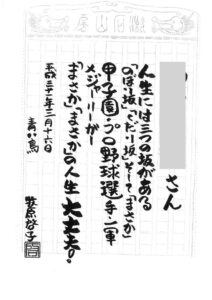 さん
人生には三つの坂がある
「のぼり坂」「くだり坂」そして「まさか」
甲子園・プロ野球選手・二軍
メジャーリーガー
「まさか」「まさか」の人生 大丈夫。
平成三十一年三月十六日
青い鳥